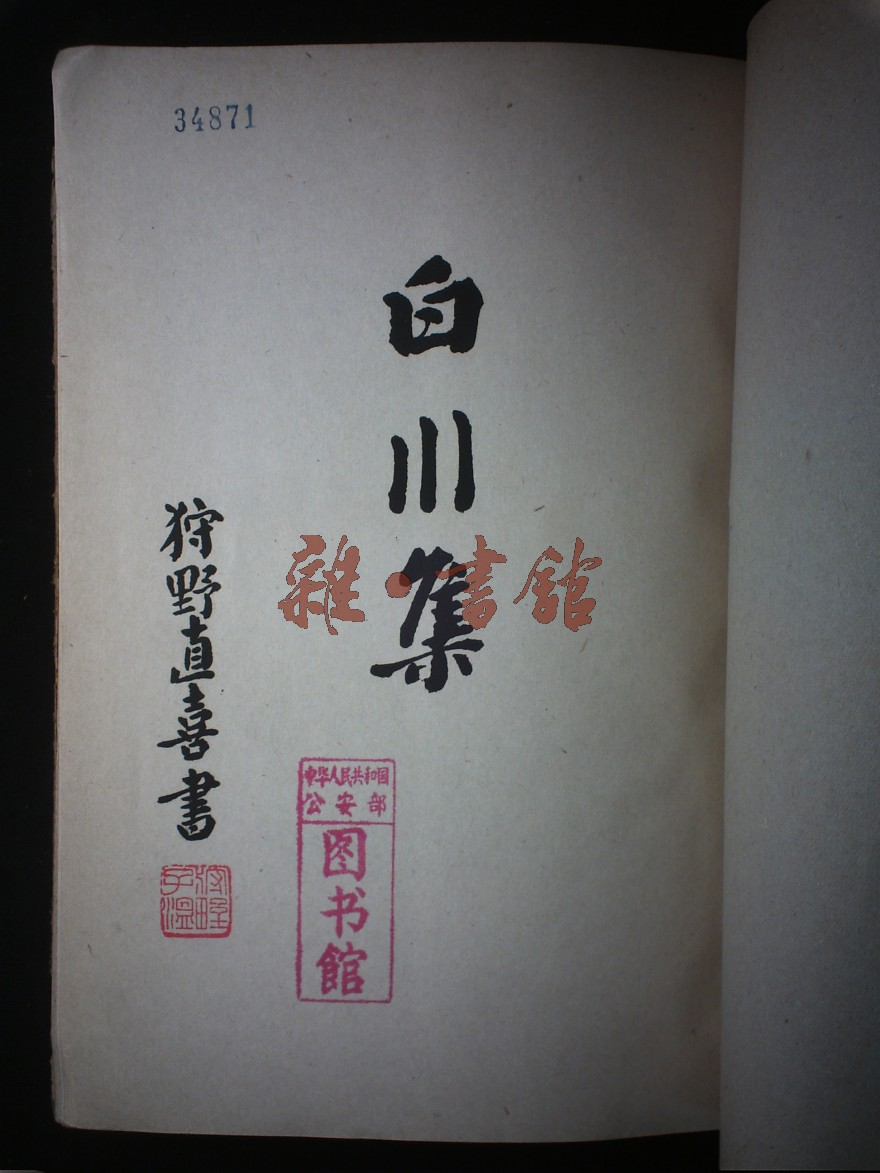 34871
白川集
狩野直喜書
狩野子温
中华人民共和国
公安部
图书館
雜·書館